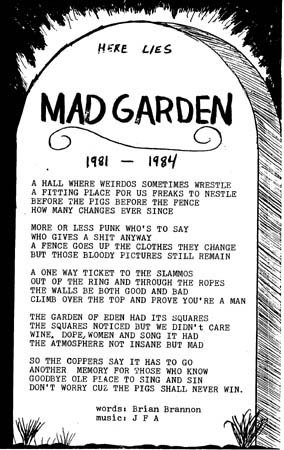 HERE LIES
MAD GARDEN
1981 — 1984
A HALL WHERE WEIRDOS SOMETIMES WRESTLE
A FITTING PLACE FOR US FREAKS TO NESTLE
BEFORE THE PIGS BEFORE THE FENCE
HOW MANY CHANGES EVER SINCE
MORE OR LESS PUNK WHO'S TO SAY
WHO GIVES A SHIT ANYWAY
A FENCE GOES UP THE CLOTHES THEY CHANGE
BUT THOSE BLOODY PICTURES STILL REMAIN
A ONE WAY TICKET TO THE SLAMMOS
OUT OF THE RING AND THROUGH THE ROPES
THE WALLS BE BOTH GOOD AND BAD
CLIMB OVER THE TOP AND PROVE YOU'RE A MAN
THE GARDEN OF EDEN HAD ITS SQUARES
THE SQUARES NOTICED BUT WE DIDN't CARE
WINE, DOPE, WOMEN AND SONG IT HAD
THE ATMOSPHERE NOT INSANE BUT MAD
SO THE COPPERS SAY IT HAS TO GO
ANOTHER MEMORY FOR THOSE WHO KNOW
GOODBYE OLE PLACE TO SING AND SIN
DON'T WORRY CUZ THE PIGS SHALL NEVER WIN.
words: Brian Brannon
music: J F A